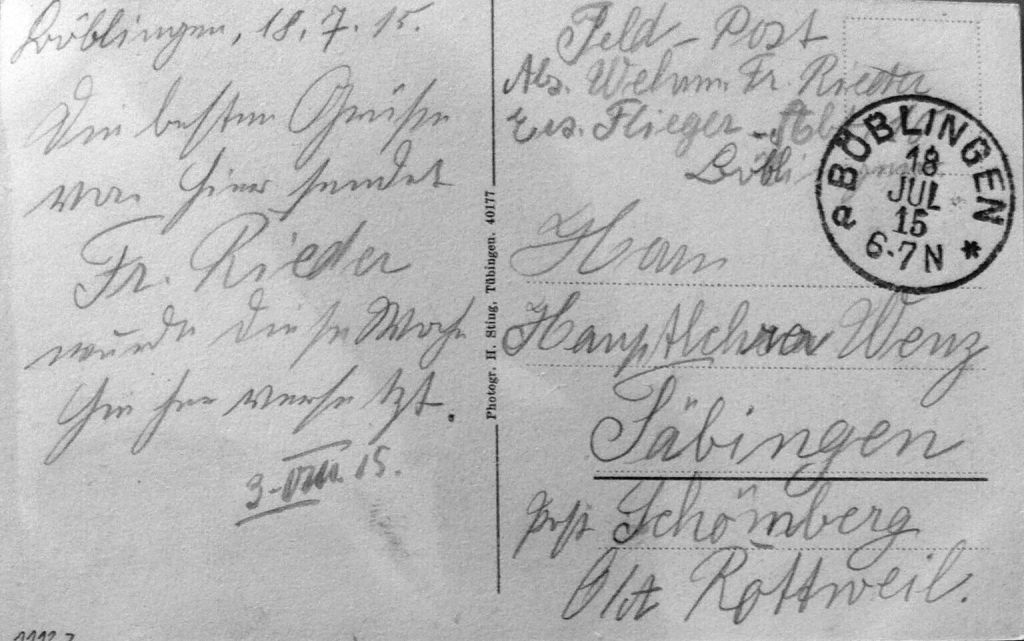 Böblingen, 18. 7. 15.
Die besten Grüße
von hier sendet
Fr. Rieder
wurde diese Woche
hierher versetzt.
3. VIII. 15.
Photogr. H. Sting, Tübingen. 40177
Feld-Post
Abs. Wehrm. Fr. Rieder
Ers. Flieger-Abt.
Böblingen
BÖBLINGEN
18
JUL
15
6-7N *
a
Herrn
Hauptlehrer Wenz
Täbingen
Post Schömberg
O/A Rottweil.